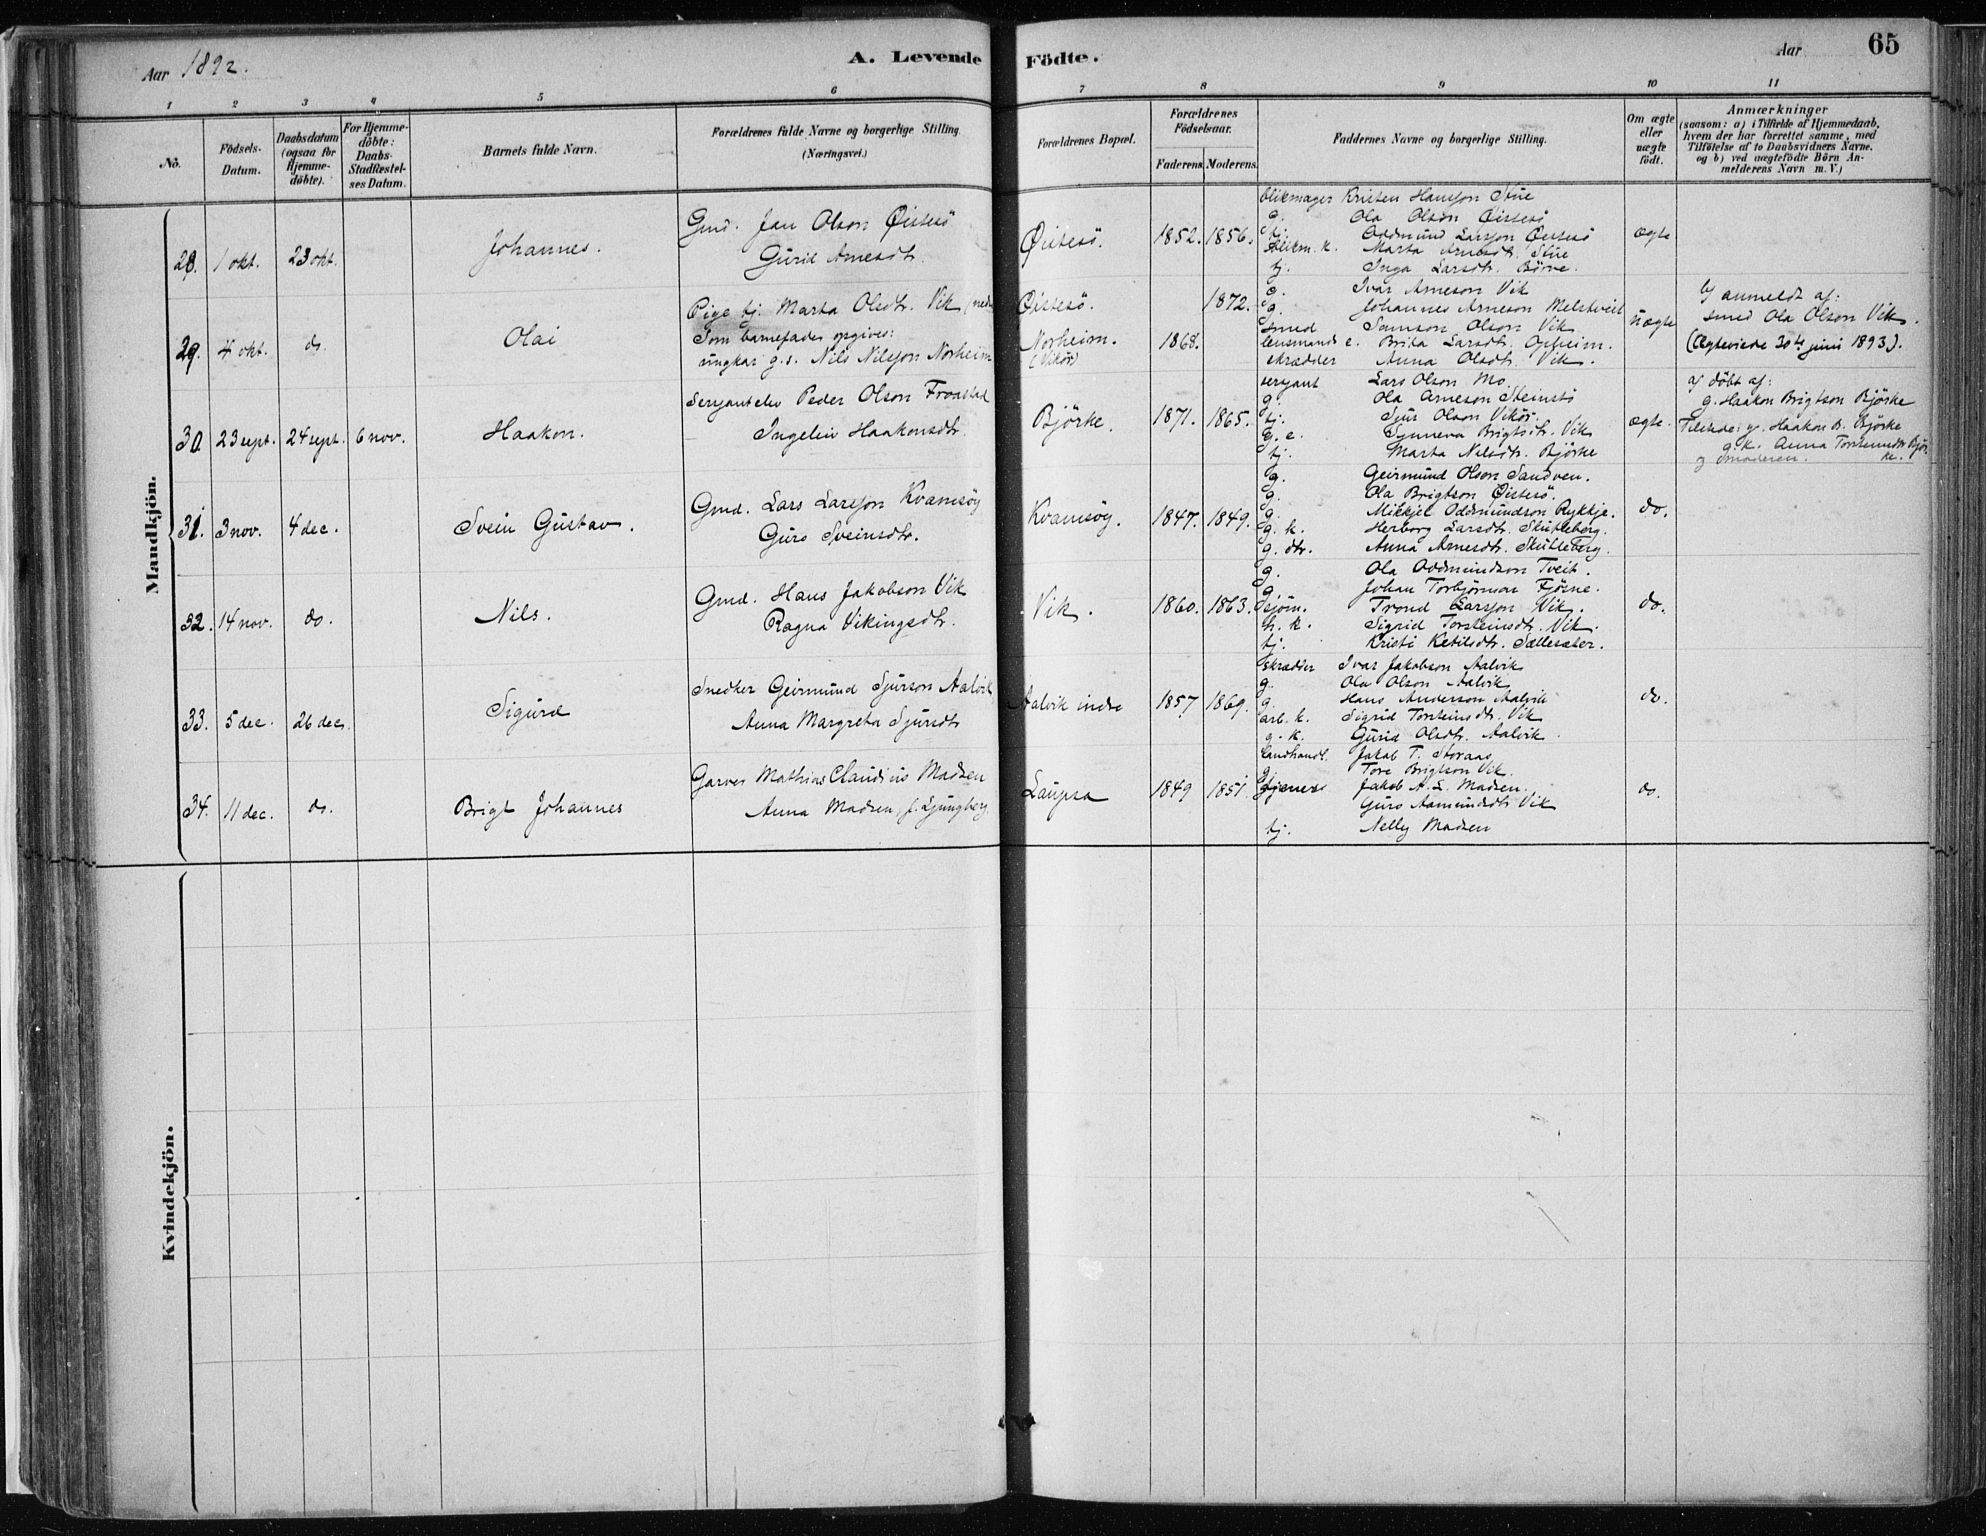 Aar 1892.
A. Levende Födte.
Aar
65
1 2 3 4 5 6 7 8 9 10 11
No.
Födsels-
Datum.
Daabsdatum
(ogsaa for
Hjemme-
döbte).
For Hjemme-
döbte:
Daabs-
Stadfæstel-
ses Datum.
Barnets fulde Navn.
Forældrenes fulde Navne og borgerlige Stilling.
(Næringsvei.)
Forældrenes Bopæl.
Forældrenes
Födselsaar.
Faderens. Moderens.
Faddernes Navne og borgerlige Stilling.
Om ægte
eller
uægte
födt.
Anmærkninger
(saasom: a) i Tilfælde af Hjemmedaab,
hvem der har forrettet samme, med
Tilföielse af to Daabsvidners Navne,
og b) ved uægtefödte Börn An-
melderens Navn m. V.)
Mandkjön.
28. 1 okt. 23 okt.
Johannes.
Gmd. Jan Olson Øistesö
Gurid Arnesdtr.
Øistesö.
1852. 1856.
blikmager Kristen Hansson Stue
g. Ola Olson Øistesö
tj. Oddmund Larsson Øistesö
blikm. k. Marta Arnesdt. Stue
tj. Inga Larsdt. Börve.
ægte
29. 4 okt. do.
Olai
Pige tj. Marta Olsdtr. Vik
Som barnefader opgives:
ungkar g.s. Nils Nilsson Norheim
Øistesö.
Norheim.
(Vikör)
1868. 1872.
g. Ivar Arneson Vik
g. Johannes Arneson Melstveit
smed Samson Olson Vik
lensmands e. Brita Larsdt.
skrædder Anna Olsdt. Vik.
uægte
b/ anmeldt af:
smed Ola Olson Vik.
(Ægteviede 30te juni 1893).
30. 23 sept. 24 sept. 6 nov.
Haakon.
Sergantelev Peder Olson Fronstad
Ingelin Haakonsdt.
Björke.
1871. 1865.
sergant Lars Olson Mo.
g. Ola Arneson Steinstö
tj. Sjur Olson Vikör.
g. e. Synneva Brigtsdt. Vik
tj. Marta Nilsdt. Björke
ægte.
a/ döbt af:
g. Haakon Brigtson Björke
Tilstede: g. Haakon B. Björke
g. k. Anna Torsteinsdtr Björ-
ke.
g moderen.
31. 3 nov. 4 dec.
Svein Gustav.
Gmd. Lars Larsson Kvamsöy
Guro Sveinsdtr.
Kvamsöy.
1847. 1849.
g. Geirmund Olson Sandven.
g. Ola Brigtson Øistesö.
g. Mikkjel Oddmundson Rykkje.
g. k. Herborg Larsdt. Skutleberg.
g. dtr. Anna Arnesdt. Skutleberg.
do.
32. 14 nov. do.
Nils.
Gmd. Hans Jakobson Vik
Ragna Vikingsdtr.
Vik.
1860. 1863.
g. Ola Oddmundson Tveit.
g. Johan Torbjörnson Fjösne.
sjöm. Trond Larsson Vik.
h. k. Sigrid Torsteinsdt. Vik.
tj. Kristi Ketilsdt. Sællesæter.
do.
33. 5 dec. 26 dec.
Sigurd
Snedker Geirmund Sjurson Aalvik
Anna Margreta Sjursdt
Aalvik indre
1857 1869.
skrædder Ivar Jakobson Aalvik
g. Ola Olson Aalvik
g. Hans Anderson Aalvik
arb. k. Sigrid Torsteinsdt. Vik
g. k. Gurid Olsdt. Aalvik.
do.
34. 11 dec. do.
Brigt Johannes
Garver Mathias Claudius Madsen
Anna Madsen, f. Ljungberg.
Laupsa
1849 1851.
landhandl. Jakob T. Storaas
g. Tore Brigtson Vik.
tjenere Jakob A. L. Madsen.
Guro Aamundsdt. Vik
tj. Nelly Madsen
do.
Kvindekjön.